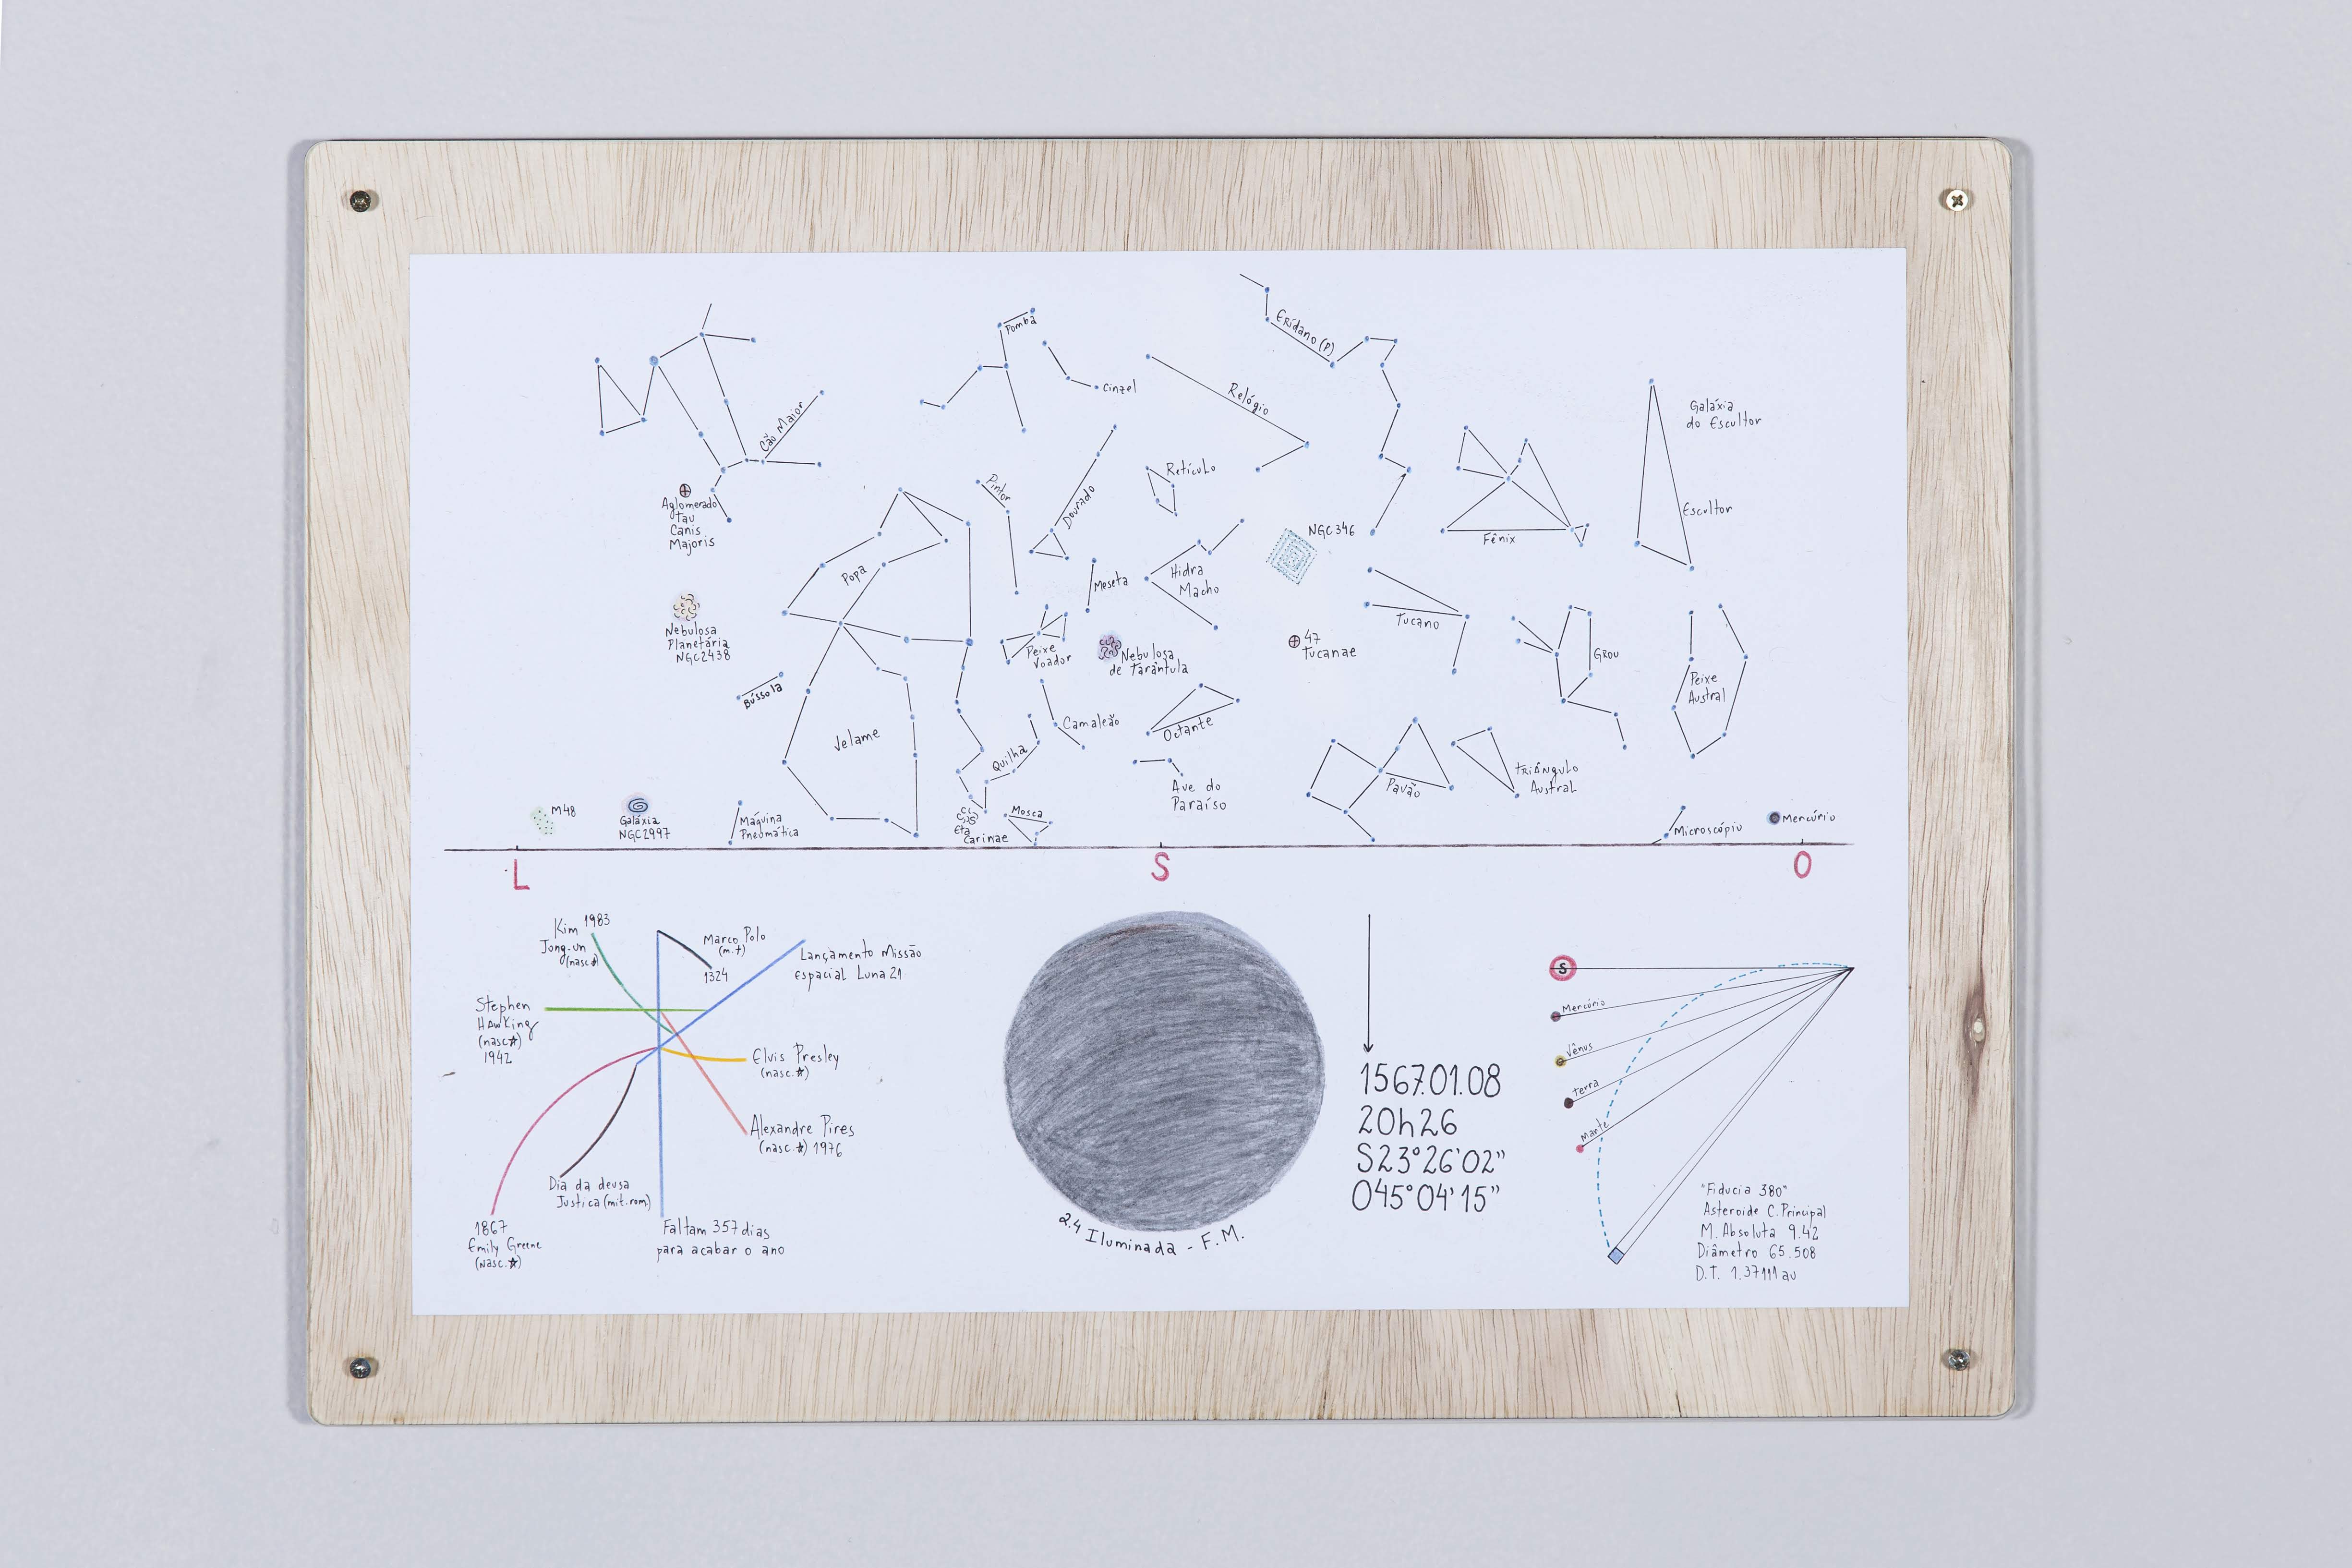 Pomba
Eridano (P)
Cinzel
Relógio
Cão Maior
Galáxia
do Escultor
Retículo
Pintor
Dourado
Aglomerado
Tau
Canis
Majoris
Escultor
NGC346
Fênix
Popa
Meseta
Hidra
Macho
Tucano
Nebulosa
Planetária
NGC2438
47
Tucanae
Peixe
Voador
Nebulosa
de Tarântula
Grou
Peixe
Austral
Bússola
Velame
Camaleão
Octante
Quilha
Triângulo
Austral
Pavão
Ave do
Paraíso
M48
Galáxia
NGC2997
Máquina
Pneumática
Eta
Carinae
Mosca
Microscópio
Mercúrio
L
S
O
Kim 1983
Jong-un
(nasc☆)
Marco Polo
(m.†)
1324
Lançamento Missão
Espacial Luna 21
Stephen
Hawking
(nasc☆)
1942
Elvis Presley
(nasc.☆)
Alexandre Pires
(nasc.☆) 1976
Dia da deusa
Justica (mit.rom)
1867
Emily Greene
(nasc.☆)
Faltam 357 dias
para acabar o ano
2.4 Iluminada - F.M.
1567.01.08
20h26
S23°26'02"
O45°04'15"
S
Mercúrio
Vênus
Terra
Marte
"Fiducia 380"
Asteroide C.Principal
M. Absoluta 9.42
Diâmetro 65.508
D.T. 1.37111 au